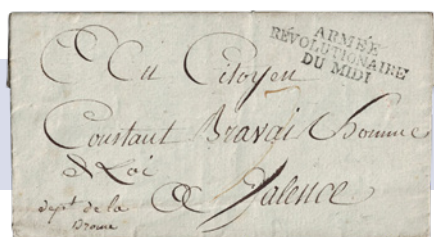 ARMÉE
RÉVOLUTIONAIRE
DU MIDI
Au Citoyen
Constant Bravai homme
de Loi
A Valence
dept de la
Drome